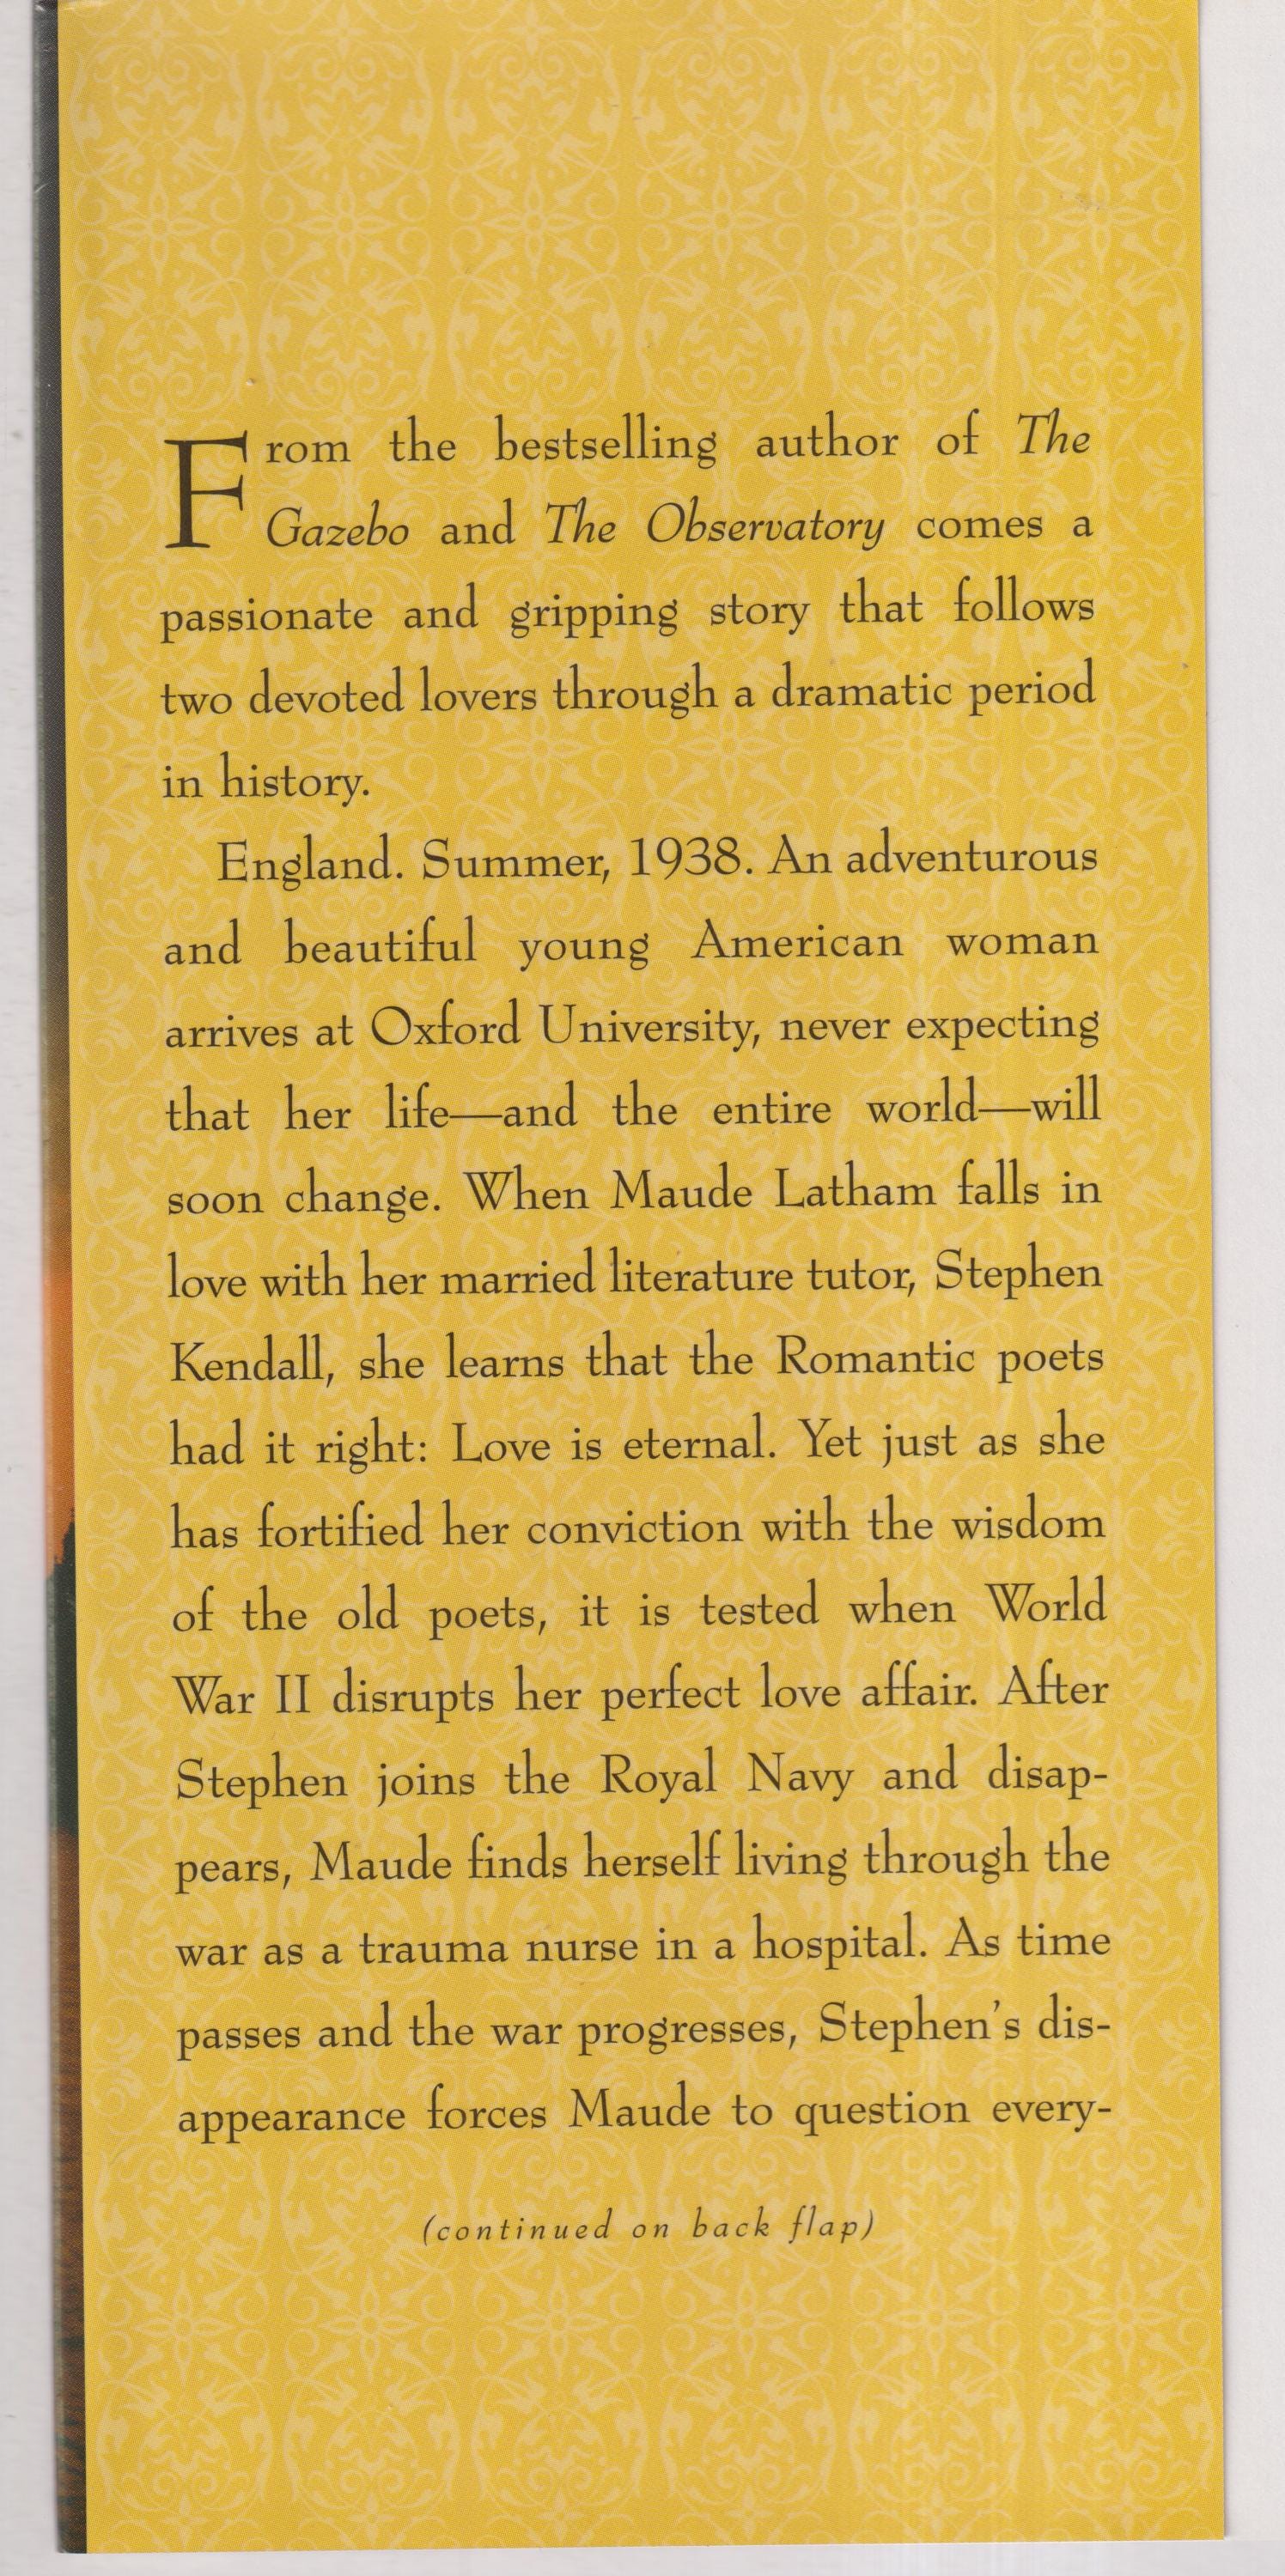 From the bestselling author of The
Gazebo and The Observatory comes a
passionate and gripping story that follows
two devoted lovers through a dramatic period
in history.
England. Summer, 1938. An adventurous
and beautiful young American woman
arrives at Oxford University, never expecting
that her life—and the entire world—will
soon change. When Maude Latham falls in
love with her married literature tutor, Stephen
Kendall, she learns that the Romantic poets
had it right: Love is eternal. Yet just as she
has fortified her conviction with the wisdom
of the old poets, it is tested when World
War II disrupts her perfect love affair. After
Stephen joins the Royal Navy and disap-
pears, Maude finds herself living through the
war as a trauma nurse in a hospital. As time
passes and the war progresses, Stephen's dis-
appearance forces Maude to question every-
(continued on back flap)